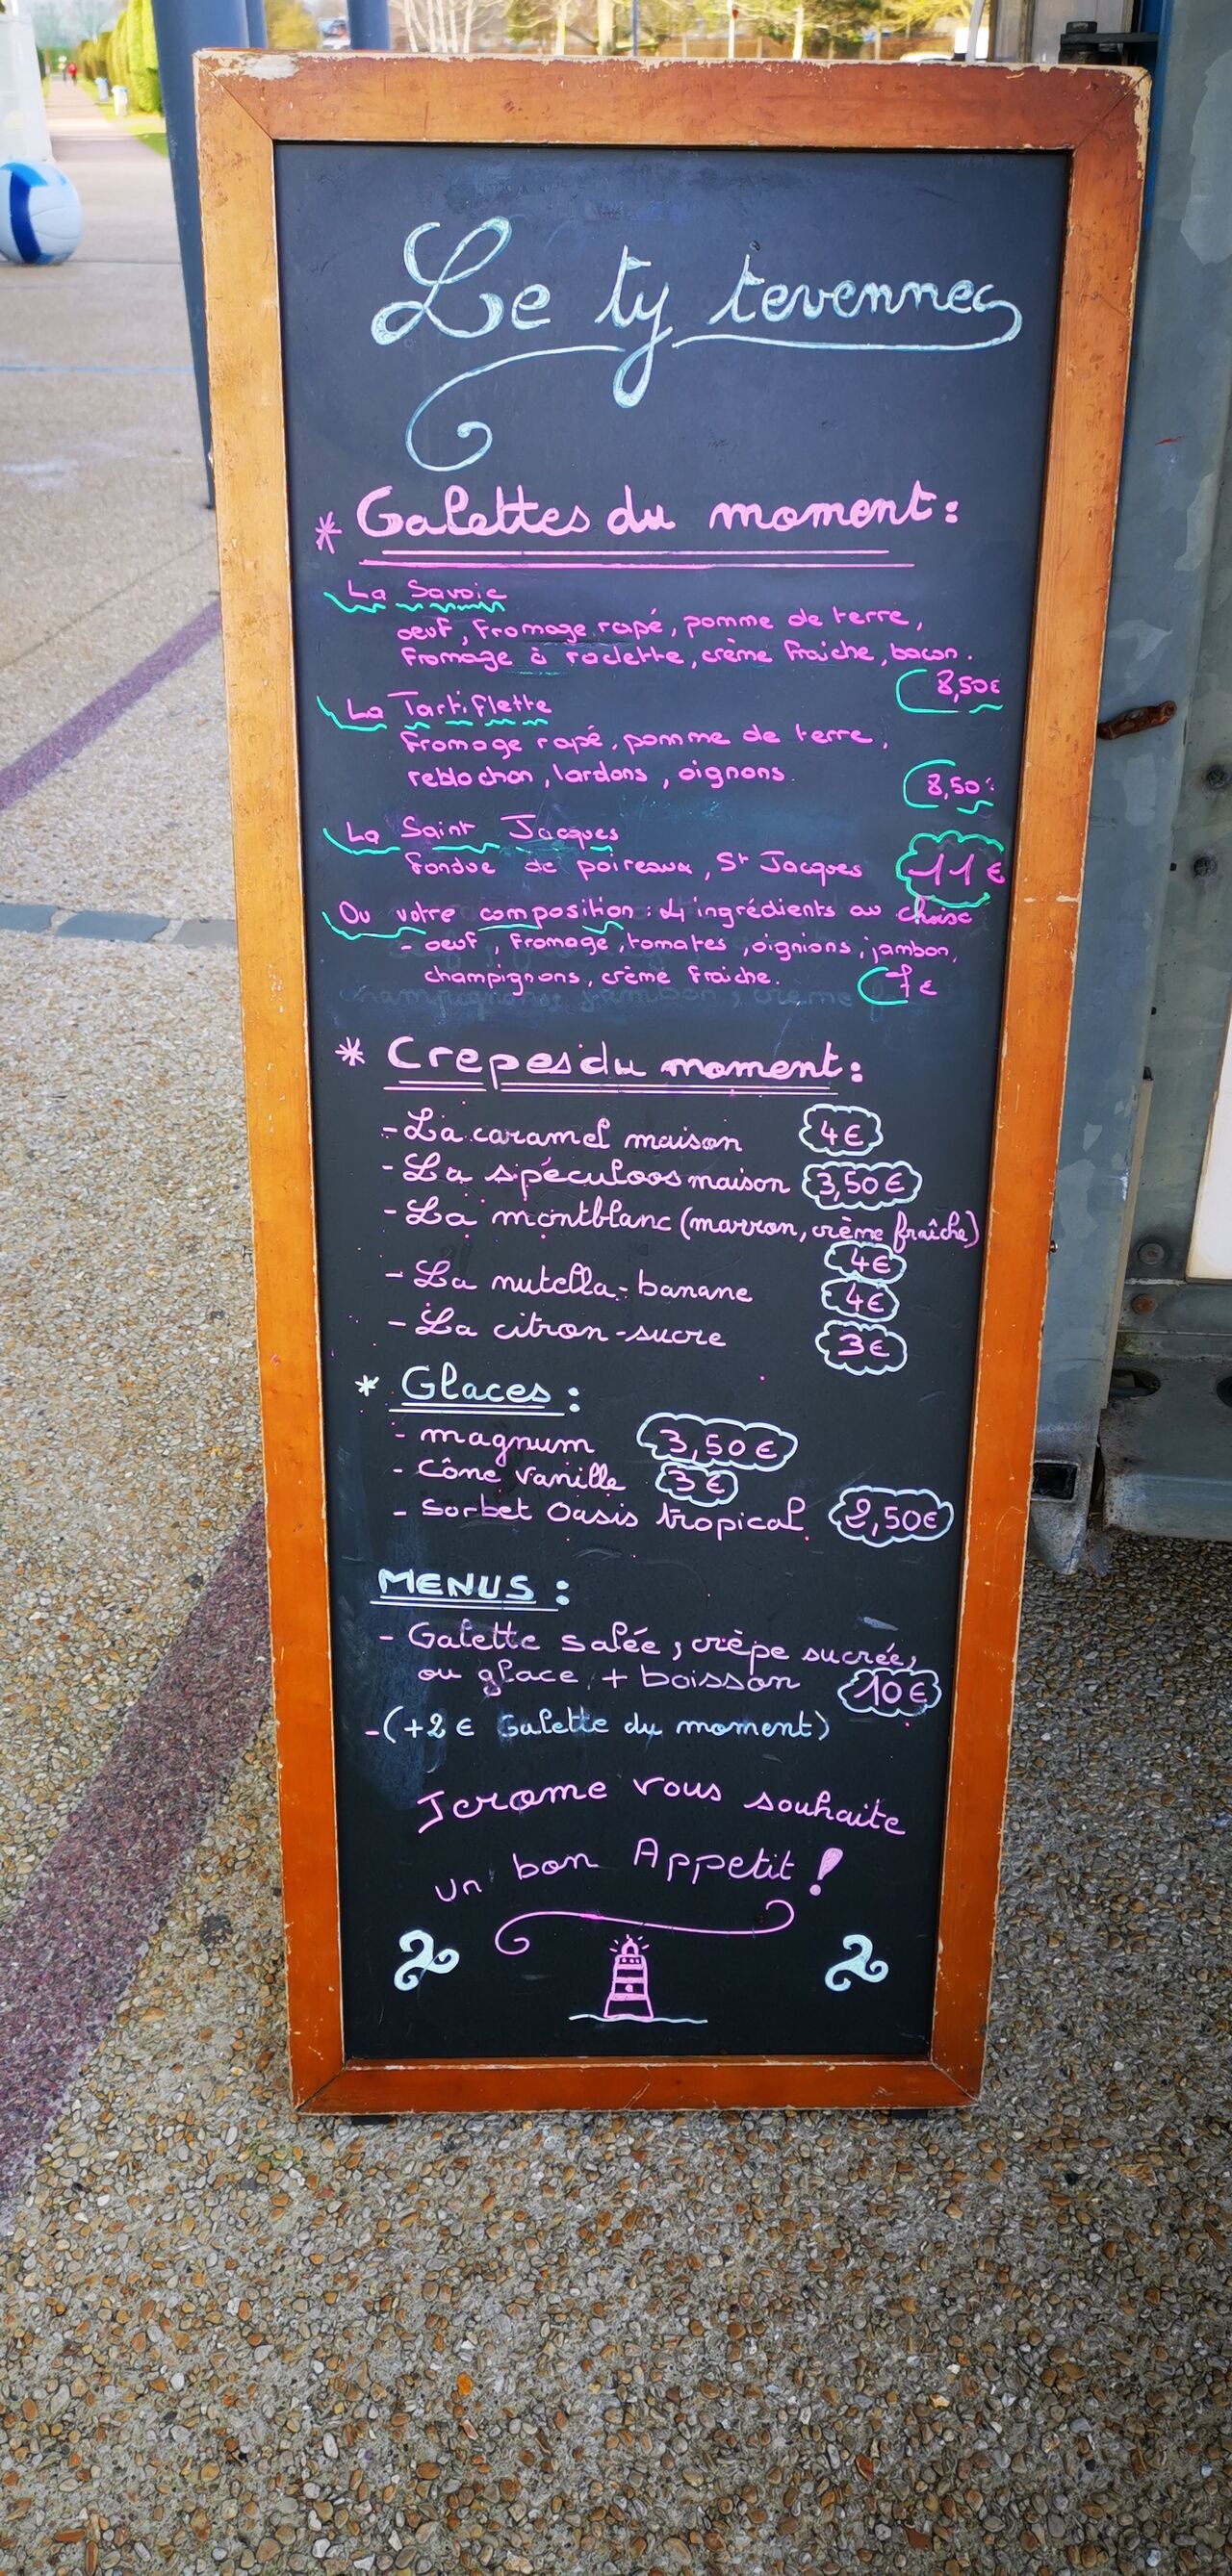 Le ty tevennec
* Galettes du moment :
La Savoie
oeuf, fromage rapé, pomme de terre,
fromage à raclette, crème fraiche, bacon.
8,50€
La Tartiflette
fromage rapé, pomme de terre,
reblochon, lardons, oignons.
8,50€
La Saint Jacques
fondue de poireaux, St Jacques 11€
Ou votre composition : 4 ingrédients au choix
- oeuf, fromage, tomates, oignions, jambon,
champignons, crème fraiche. 7€
* Crepes du moment :
- La caramel maison 4€
- La spéculoos maison 3,50€
- La montblanc (marron, crème fraîche)
4€
- La nutella-banane 4€
- La citron-sucre 3€
* Glaces :
- magnum 3,50€
- Cône Vanille 3€
- Sorbet Oasis tropical 2,50€
MENUS :
- Galette salée, crèpe sucrée,
ou glace + boisson 10€
-(+2€ Galette du moment)
Jerome vous souhaite
un bon Appetit !